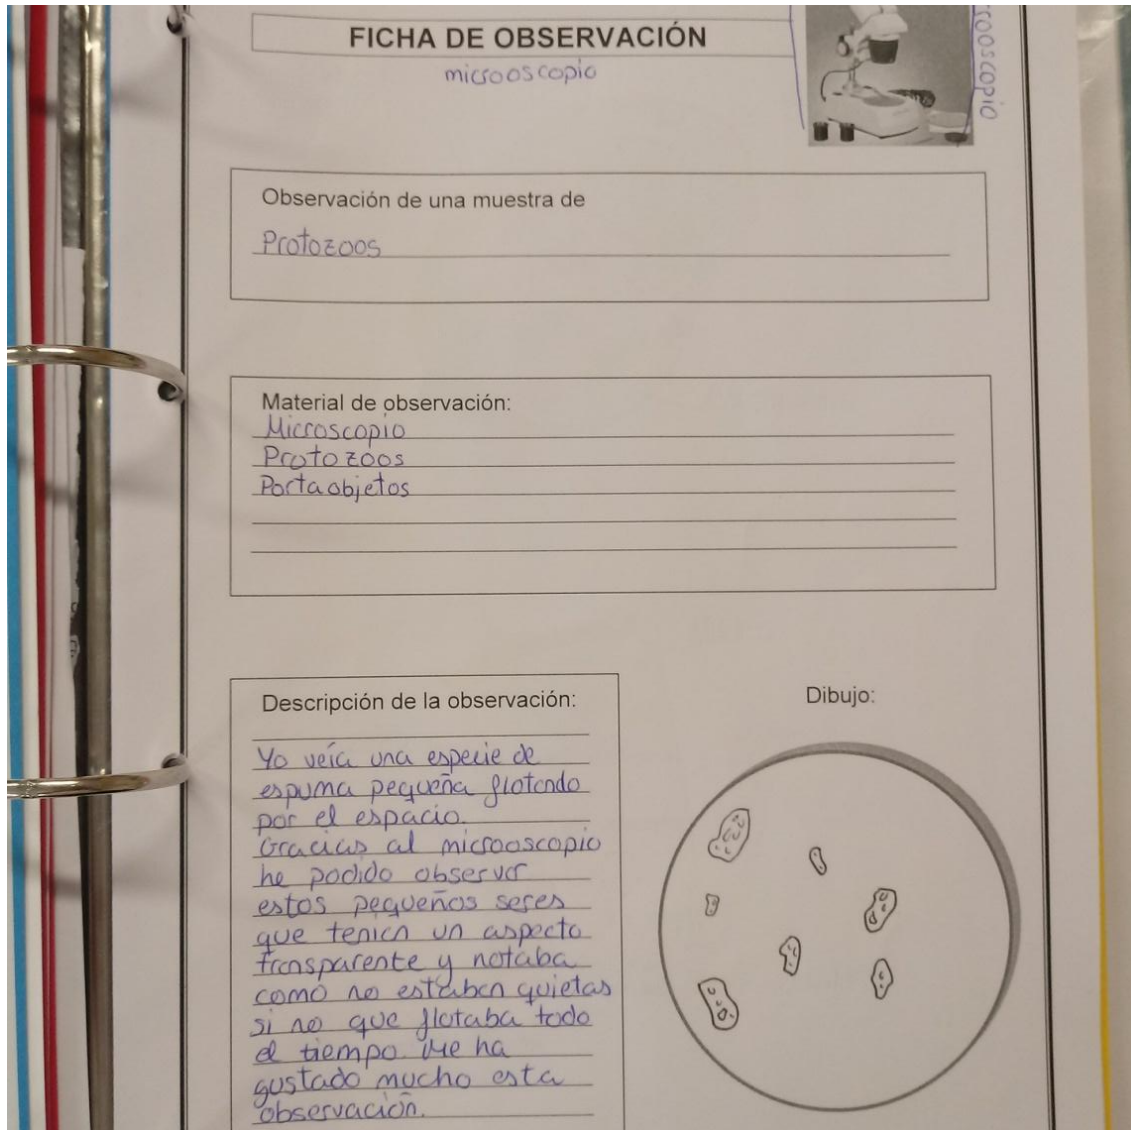 FICHA DE OBSERVACIÓN
microoscopio
Observación de una muestra de
Protozoos
Material de observación:
Microscopio
Protozoos
Portaobjetos
Descripción de la observación:
Yo veía una especie de
espuma pequeña flotando
por el espacio.
Gracias al microoscopio
he podido observar
estos pequeños seres
que tenían un aspecto
transparente y notaba
como no estaban quietas
si no que flotaba todo
el tiempo. Me ha
gustado mucho esta
observación.
Dibujo: